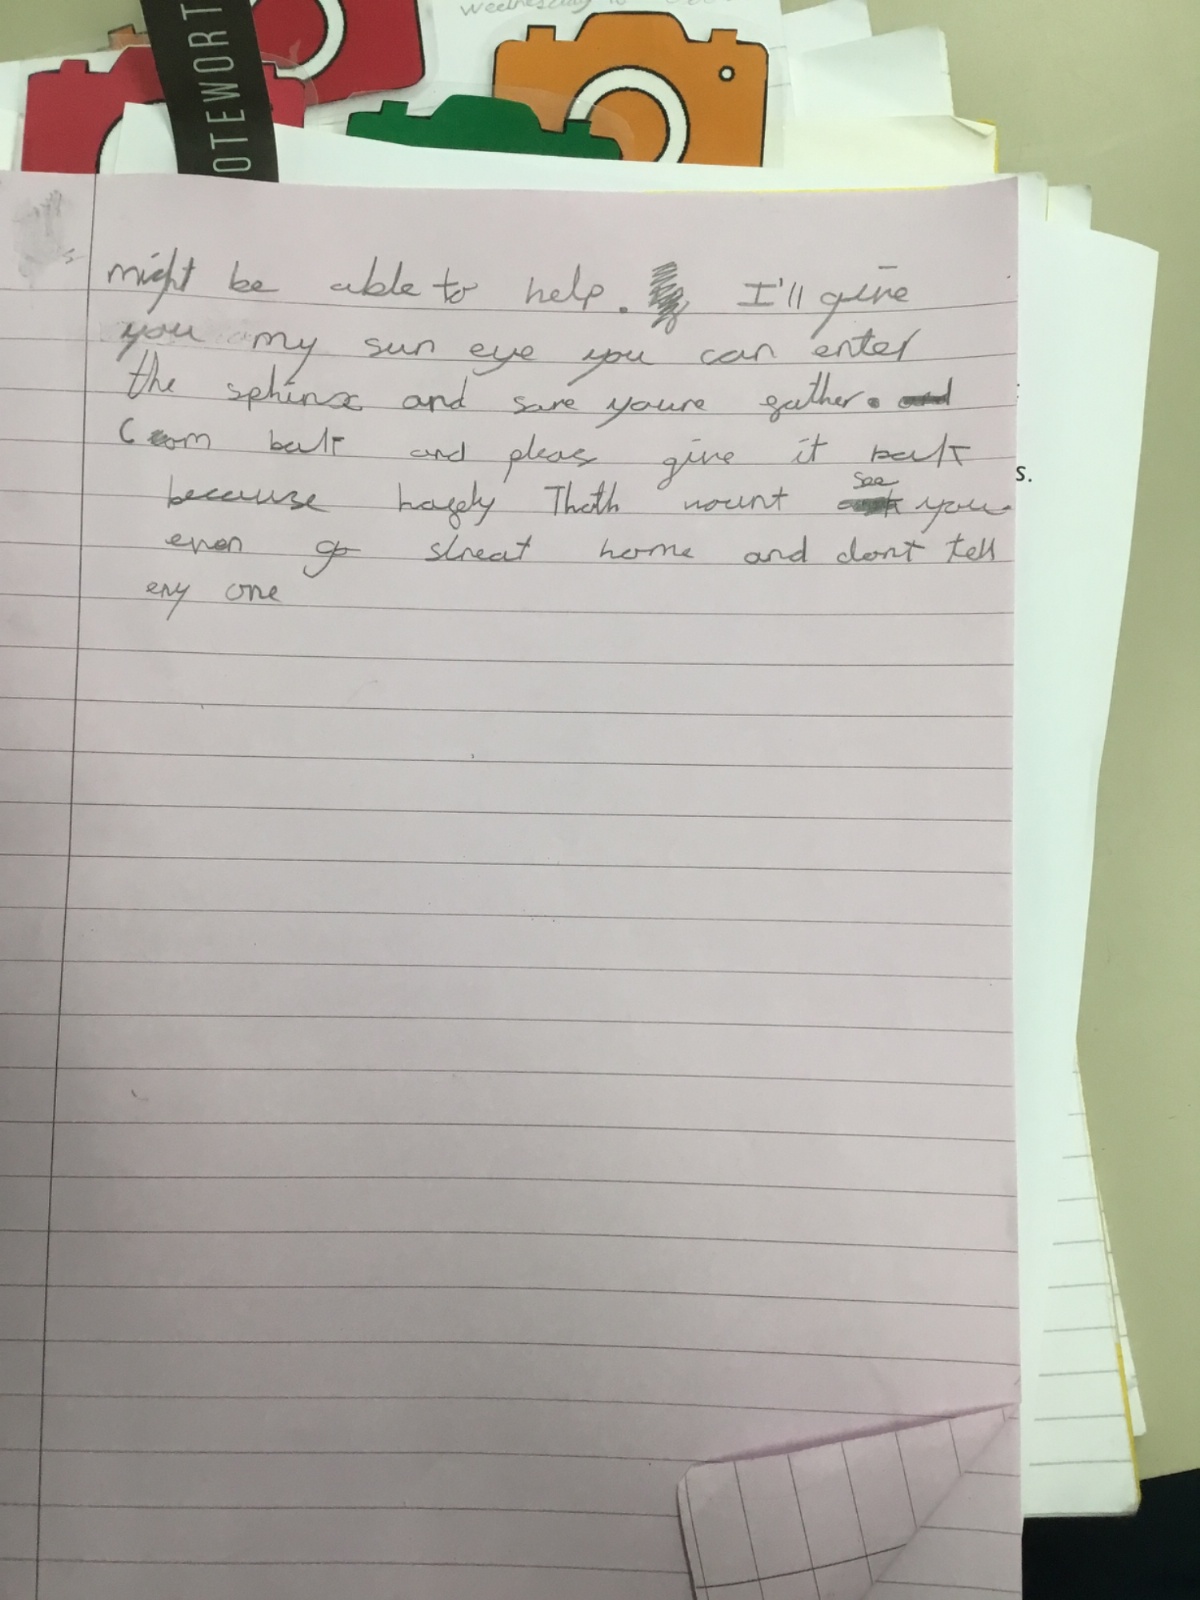 OTEWORT
Wednesday
might be able to help. I'll give
you my sun eye you can enter
the sphinx and save youre gather.
Com balt and pleas give it balt
because hagely Thoth wount see you
even go streat home and dont tell
eny one
s.